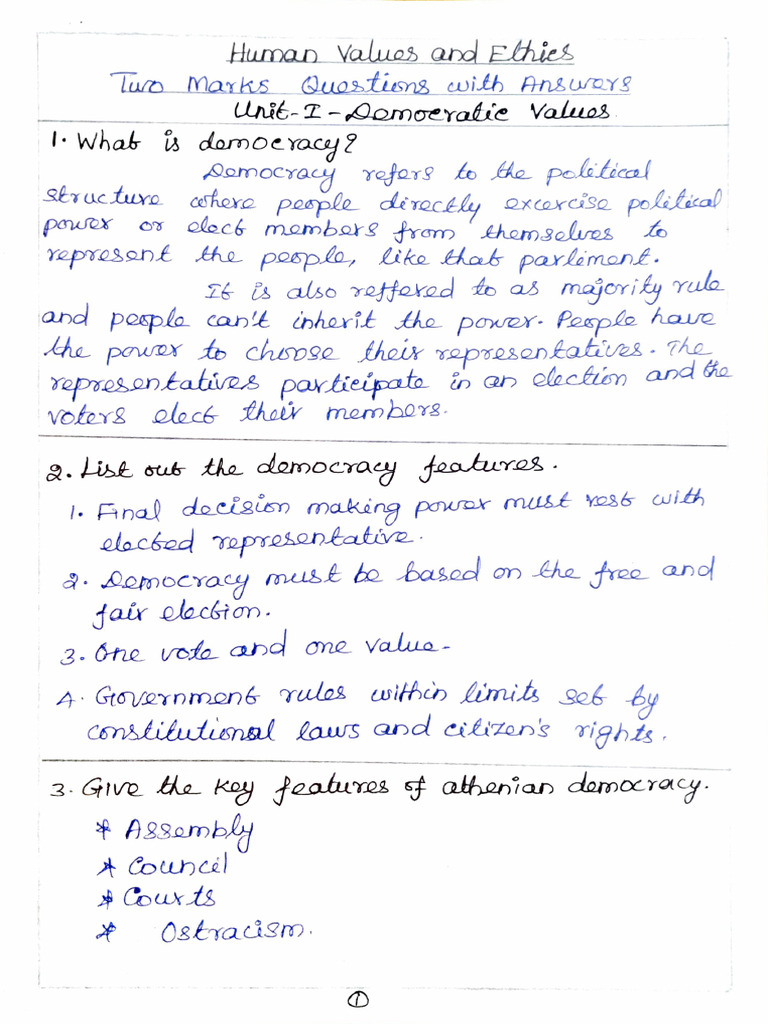 Human Values and Ethics
Two Marks Questions with Answers
Unit-I-Democratic Values.
1. What is democracy?
Democracy refers to the political
structure where people directly excercise political
power or elect members from themselves to
represent the people, like that parliment.
It is also reffered to as majority rule
and people can't inherit the power. People have
the power to choose their representatives. The
representatives participate in an election and the
voters elect their members.
2. List out the democracy features.
1. Final decision making power must rest with
elected representative.
2. Democracy must be based on the free and
fair election.
3. One vote and one value-
4. Government rules within limits set by
constitutional laws and citizen's rights.
3. Give the key features of athenian democracy.
* Assembly
* Council
* Courts
* Ostracism.
1